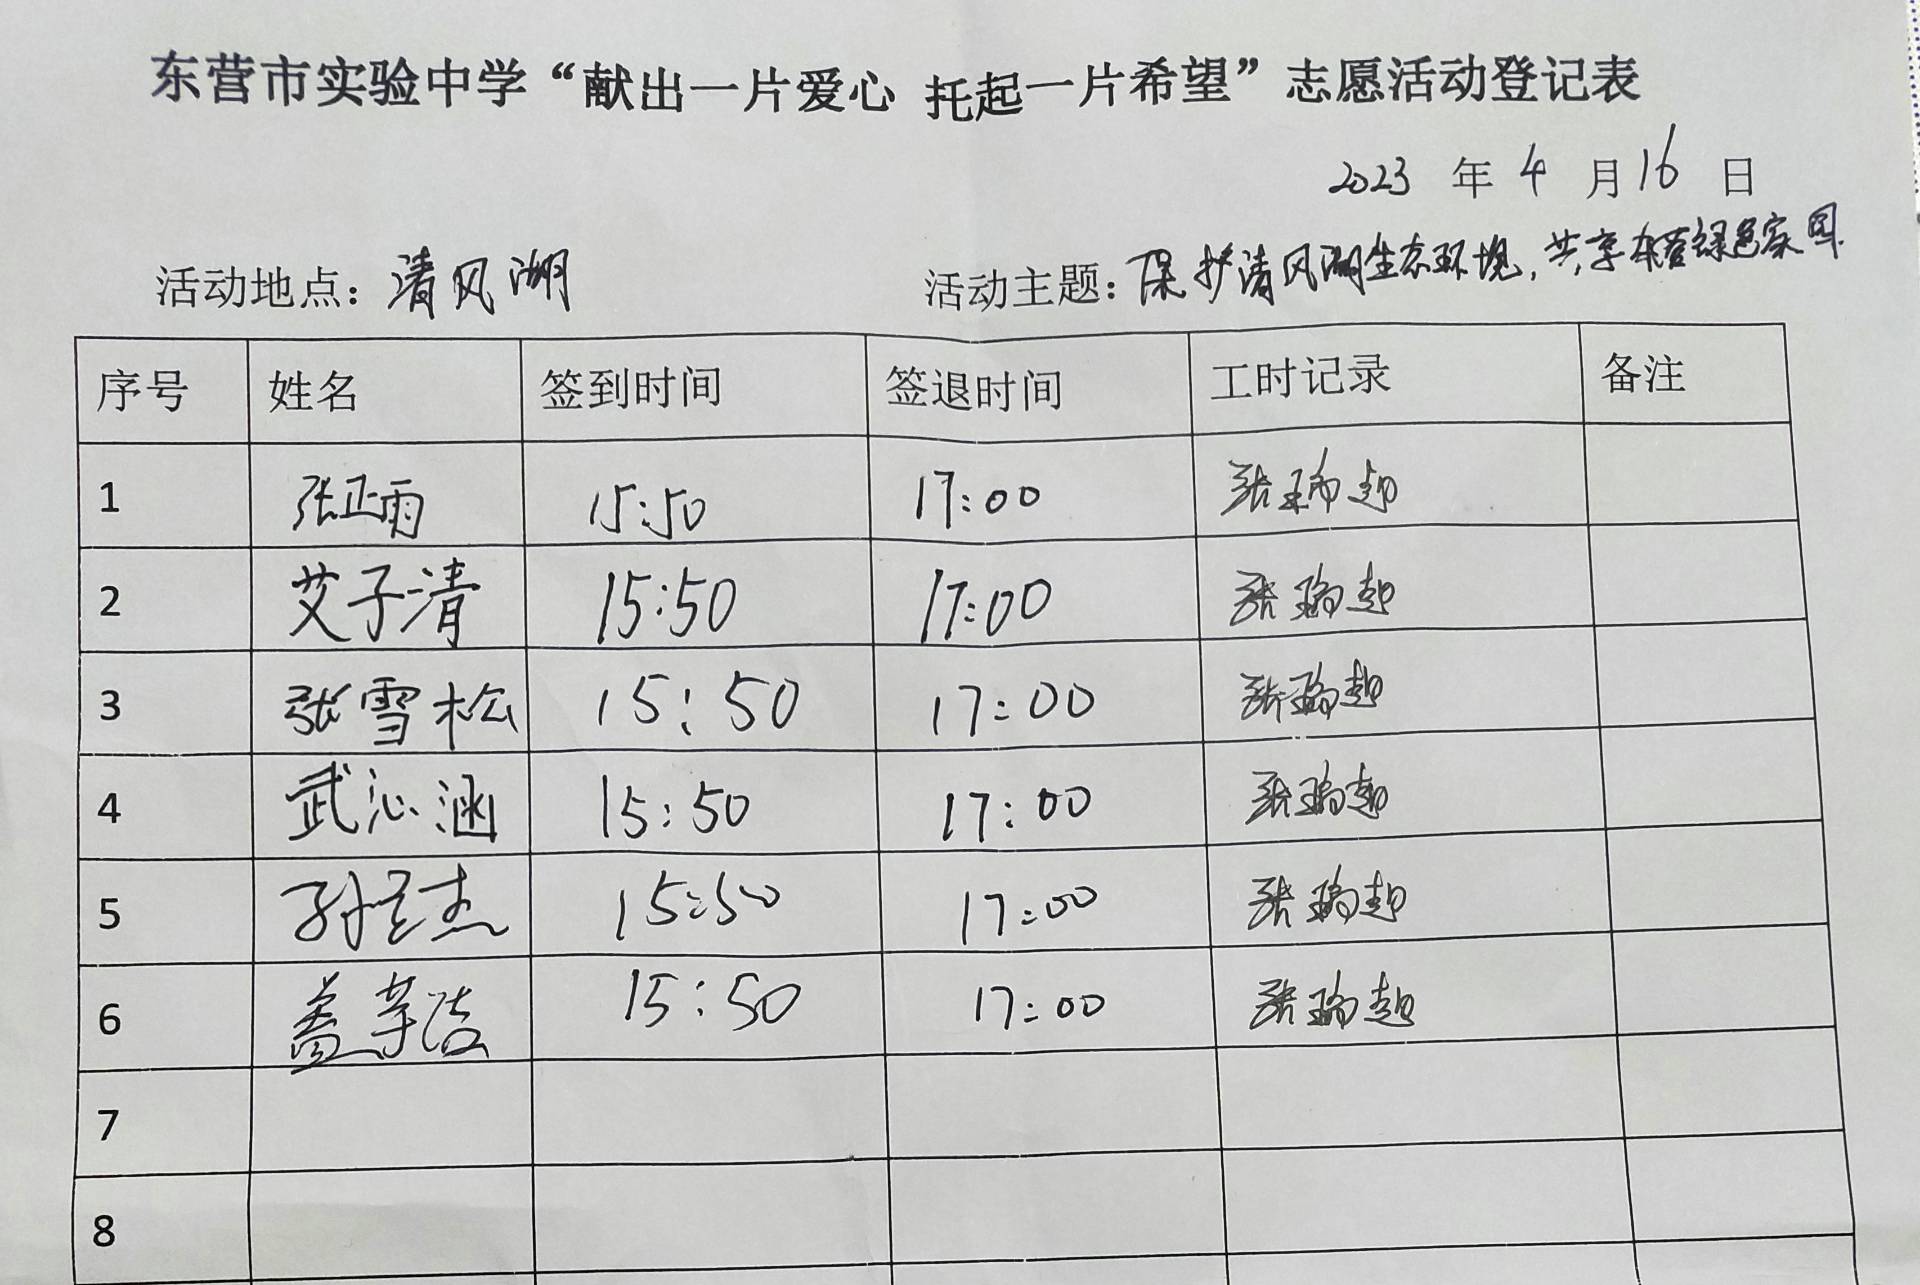 东营市实验中学“献出一片爱心 托起一片希望”志愿活动登记表
2023 年 4 月 16 日
活动地点：清风湖 活动主题：保护清风湖生态环境，共享东营绿色家园.
序号 姓名 签到时间 签退时间 工时记录 备注
1 张正雨 15:50 17:00 张瑞超
2 艾子清 15:50 17:00 张瑞超
3 张雪松 15:50 17:00 张瑞超
4 武沁涵 15:50 17:00 张瑞超
5 孙 杰 15:50 17:00 张瑞超
6 盖 15:50 17:00 张瑞超
7
8